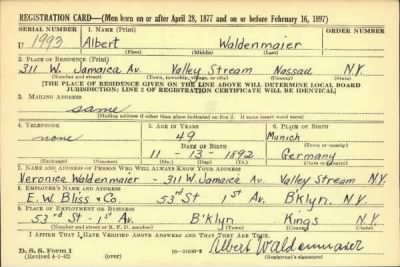 REGISTRATION CARD—(Men born on or after April 28, 1877 and on or before February 16, 1897)
SERIAL NUMBER 1. NAME (Print) ORDER NUMBER
U 1993 Albert Waldenmaier
(First) (Middle) (Last)
2. PLACE OF RESIDENCE (Print)
311 W. Jamaica Av. Valley Stream Nassau N.Y.
(Number and street) (Town, township, village, or city) (County) (State)
[THE PLACE OF RESIDENCE GIVEN ON THE LINE ABOVE WILL DETERMINE LOCAL BOARD
JURISDICTION; LINE 2 OF REGISTRATION CERTIFICATE WILL BE IDENTICAL]
3. MAILING ADDRESS
same
[Mailing address if other than place indicated on line 2. If same insert word same]
4. TELEPHONE 5. AGE IN YEARS 6. PLACE OF BIRTH
none 49 Munich
DATE OF BIRTH (Town or county)
11 - 13 - 1892 Germany
(Exchange) (Number) (Mo.) (Day) (Yr.) (State or country)
7. NAME AND ADDRESS OF PERSON WHO WILL ALWAYS KNOW YOUR ADDRESS
Veronica Waldenmaier - 311 W. Jamaica Av. Valley Stream N.Y.
8. EMPLOYER'S NAME AND ADDRESS
E. W. Bliss & Co. 53rd St 1st Av. B'klyn. N.Y.
9. PLACE OF EMPLOYMENT OR BUSINESS
53rd St - 1st Av. B'klyn Kings N.Y.
(Number and street or R. F. D. number) (Town) (County) (State)
I AFFIRM THAT I HAVE VERIFIED ABOVE ANSWERS AND THAT THEY ARE TRUE.
D. S. S. Form 1
(Revised 4-1-42) (over) Albert Waldenmaier
(Registrant's signature)